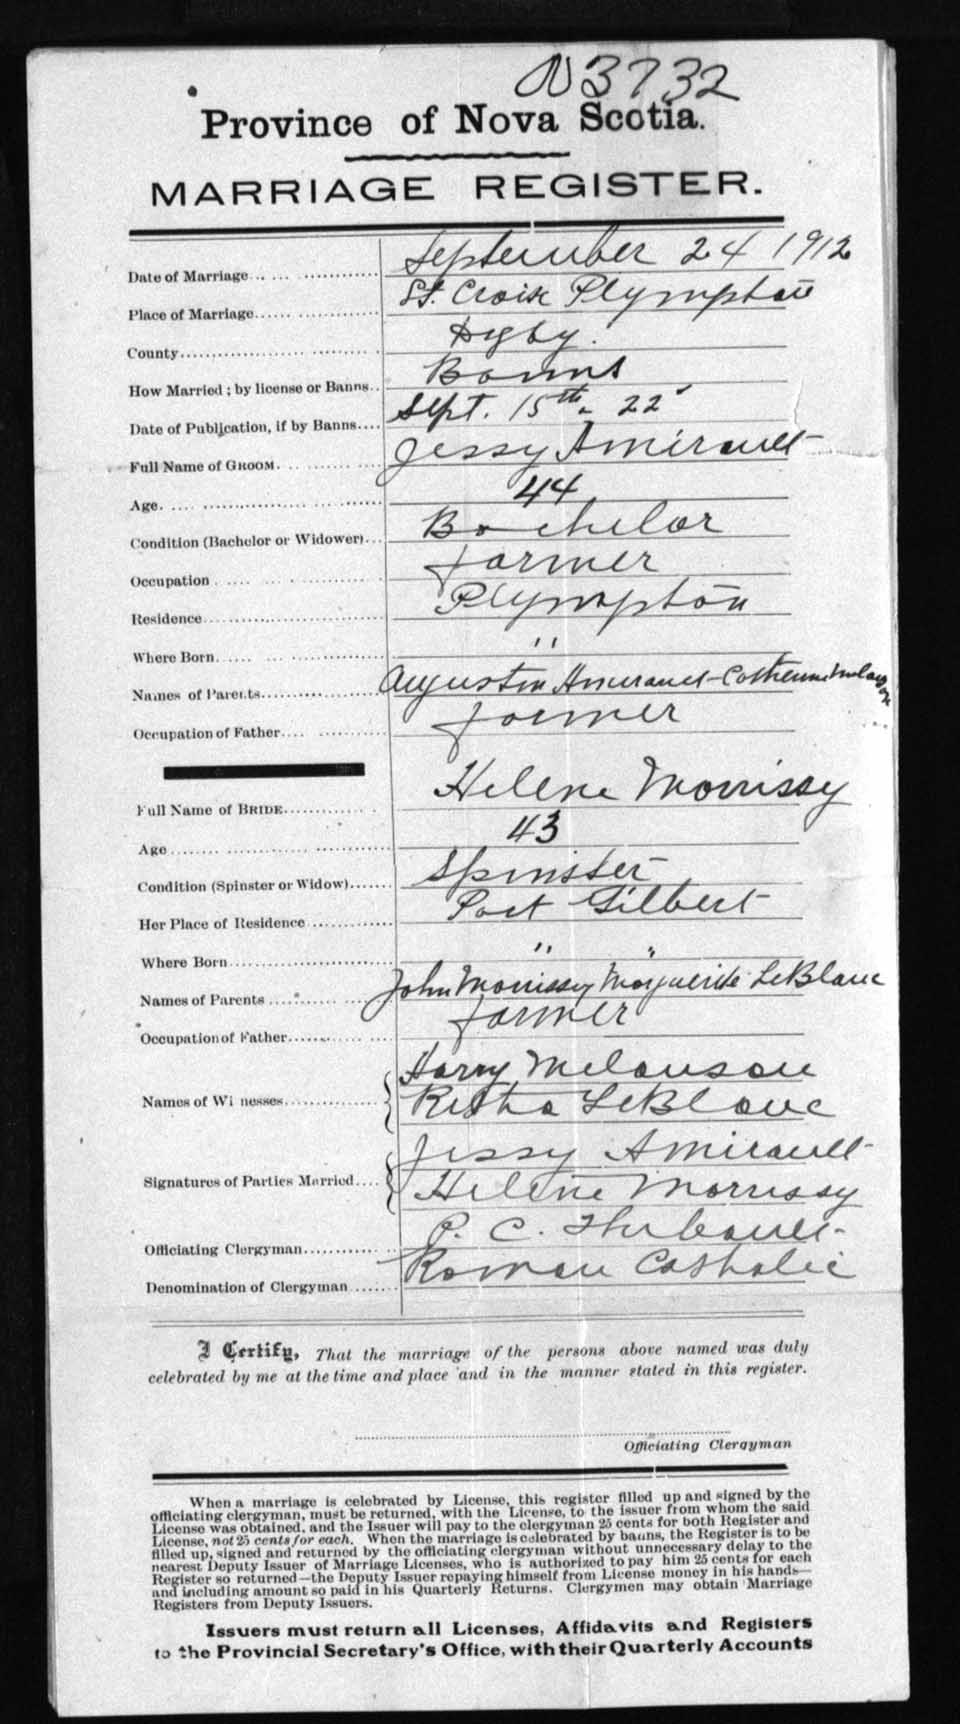 N3732
Province of Nova Scotia.
MARRIAGE REGISTER.
Date of Marriage September 24 1912
Place of Marriage St. Croix Plympton
County Digby.
How Married; by license or Banns Banns
Date of Publication, if by Banns Sept. 15th 22
Full Name of GROOM Jessy Amirault
Age 44
Condition (Bachelor or Widower) Bachelor
Occupation farmer
Residence Plympton
Where Born "
Names of Parents Augustin Amirault Catherine Melanson
Occupation of Father farmer
Full Name of BRIDE Helene Morrissy
Age 43
Condition (Spinster or Widow) Spinster
Her Place of Residence Port Gilbert
Where Born " "
Names of Parents John Morrissy Marguerite LeBlanc
Occupation of Father farmer
Harry Melanson
Names of Witnesses Retha LeBlanc
Jessy Amirault
Signatures of Parties Married Helene Morrissy
Officiating Clergyman P. C. Thibault
Denomination of Clergyman Roman Catholic
I Certify, That the marriage of the persons above named was duly
celebrated by me at the time and place and in the manner stated in this register.
Officiating Clergyman
When a marriage is celebrated by License, this register filled up and signed by the
officiating clergyman, must be returned, with the License, to the issuer from whom the said
License was obtained, and the Issuer will pay to the clergyman 25 cents for both Register and
License, not 25 cents for each. When the marriage is celebrated by banns, the Register is to be
filled up, signed and returned by the officiating clergyman without unnecessary delay to the
nearest Deputy Issuer of Marriage Licenses, who is authorized to pay him 25 cents for each
Register so returned—the Deputy Issuer repaying himself from License money in his hands—
and including amount so paid in his Quarterly Returns. Clergymen may obtain Marriage
Registers from Deputy Issuers.
Issuers must return all Licenses, Affidavits and Registers
to the Provincial Secretary's Office, with their Quarterly Accounts